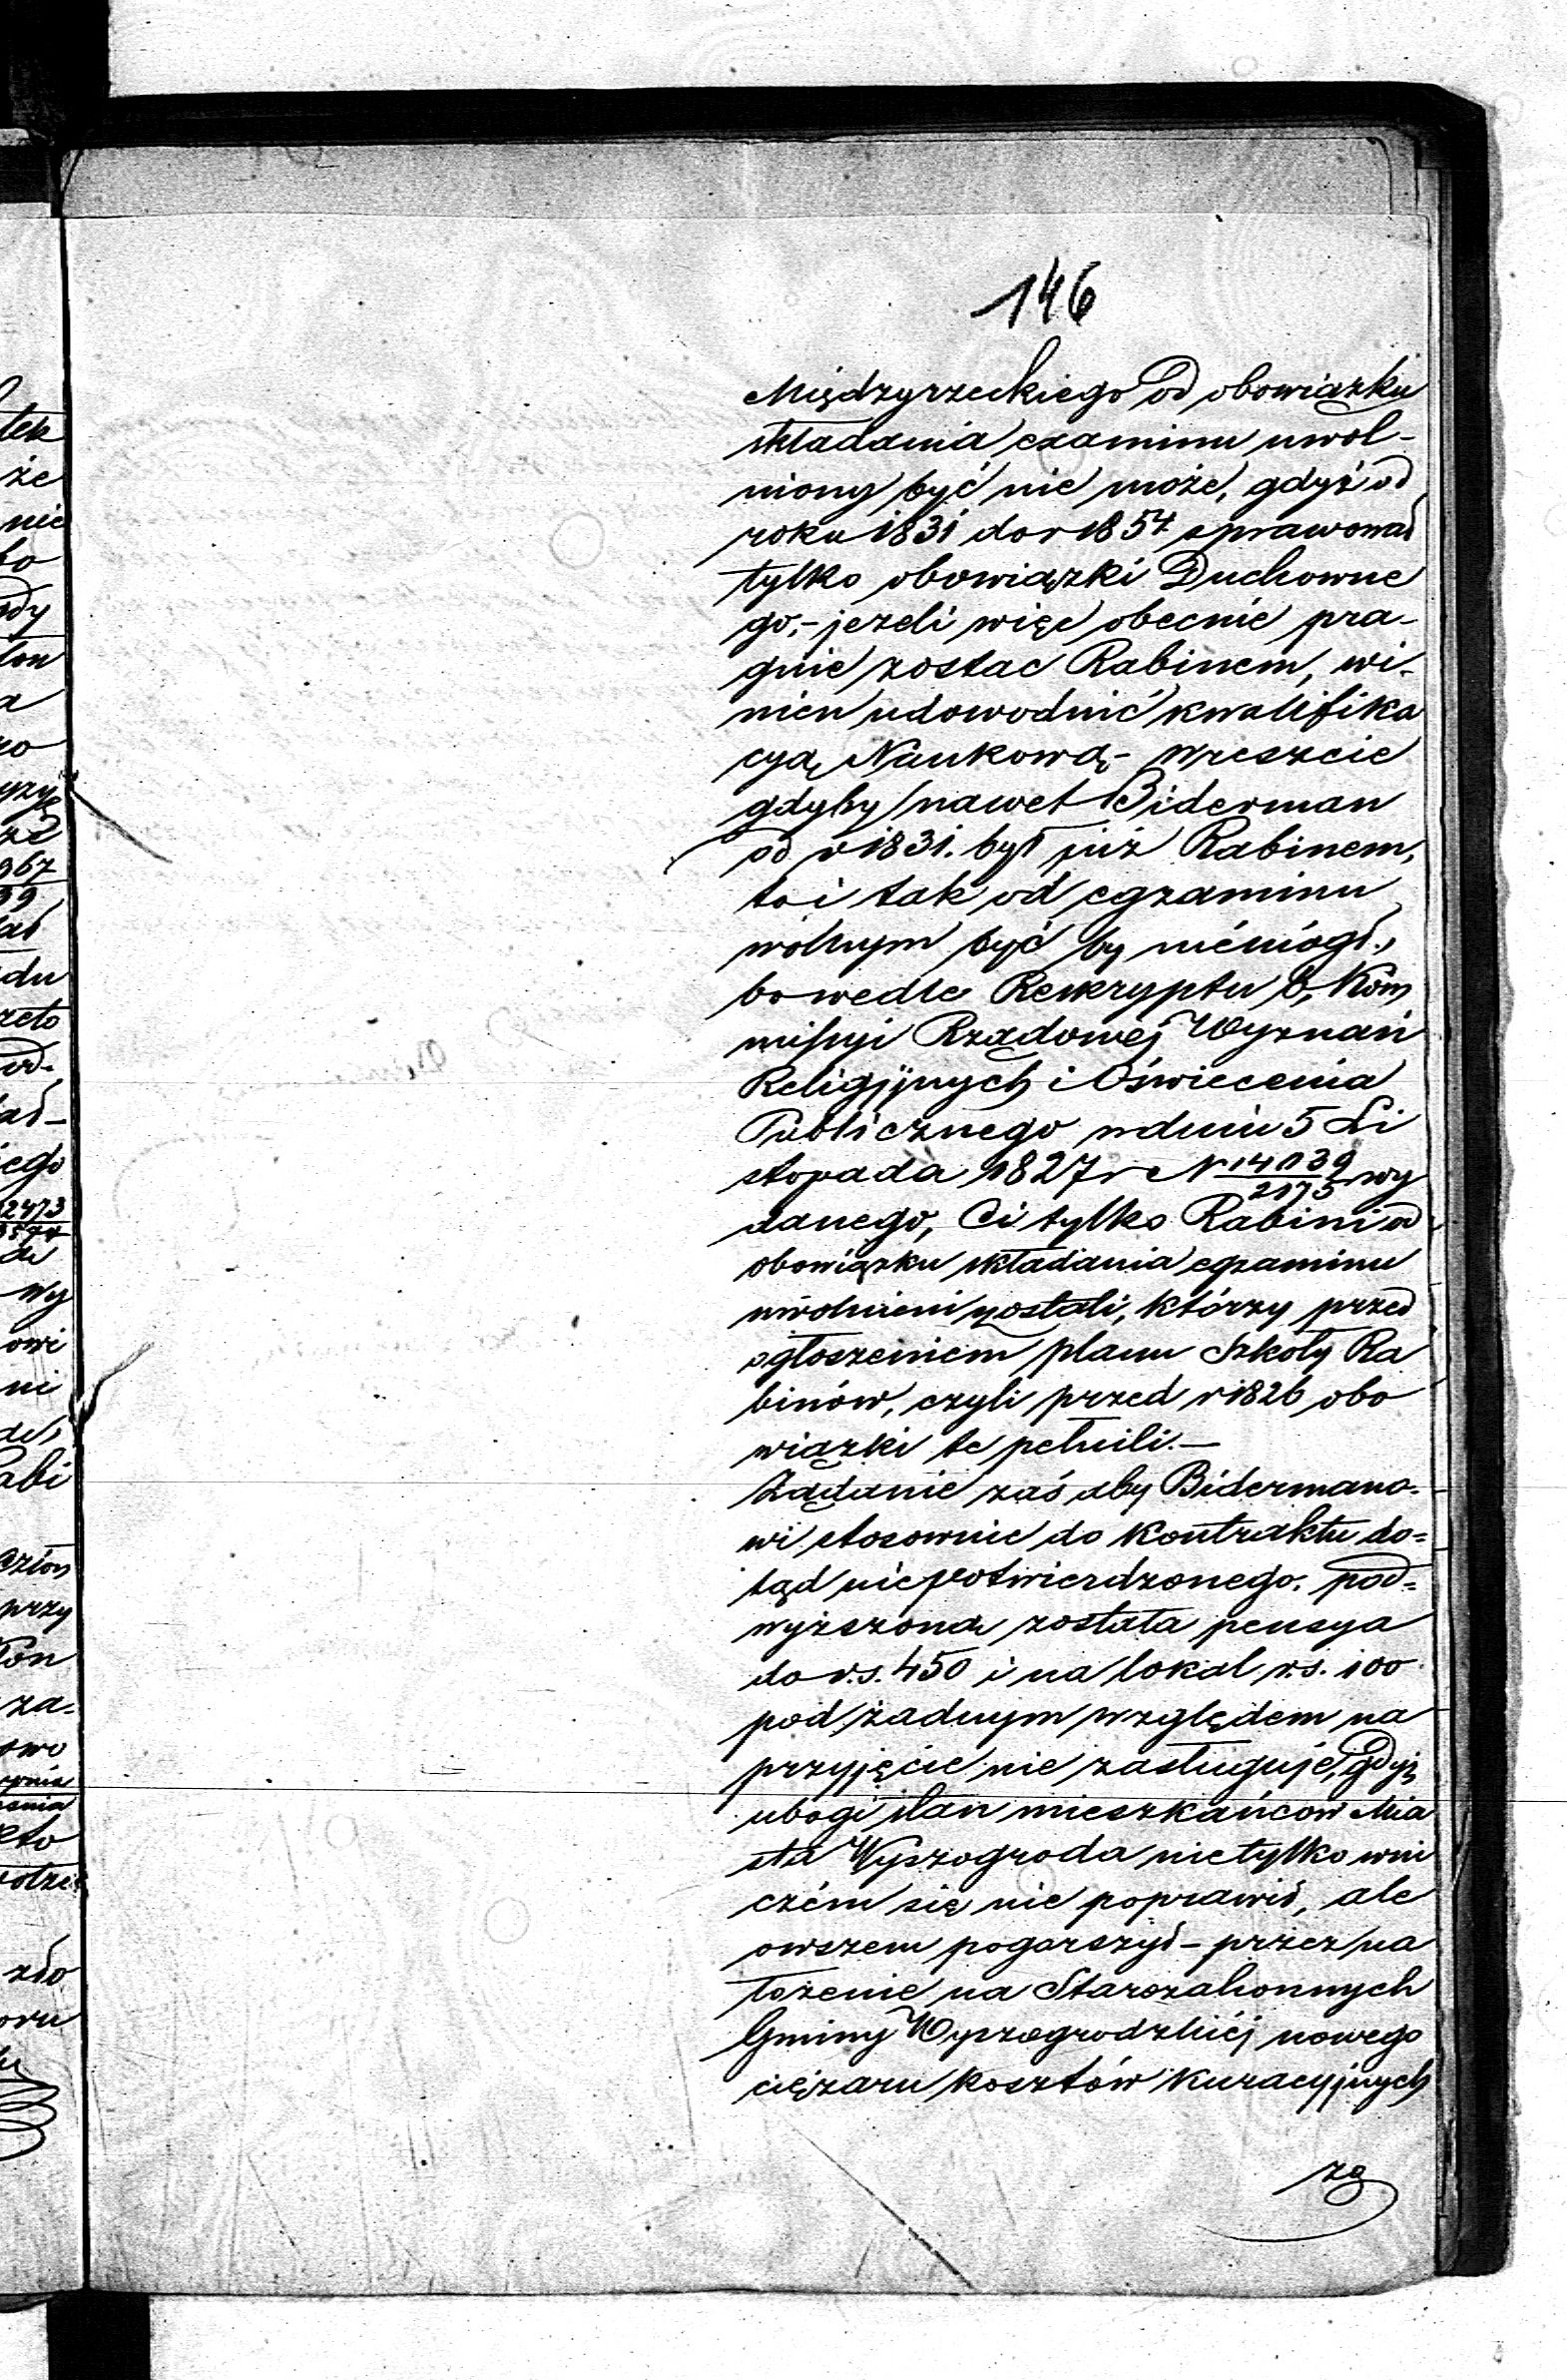 146
Międzyrzeckiego od obowiązku
składania examinu uwol-
niony być nie może, gdyż od
roku 1831 do r 1854 sprawował
tylko obowiązki Duchowne
go,- jezeli więc obecnie pra-
gnie zostac Rabinem, wi-
nien udowodnić kwalifika
cyą Naukową- wreszcie
gdyby nawet Biderman
od r 1831. był już Rabinem,
to i tak od egzaminu
wolnym być by niemógł.,
bo wedle Reskryptu b, Kom
missyi Rządowej Wyznań
Religijnych i Oświecenia
Publicznego w dniu 5 Li
stopada 1827 r N 14039/2175 wy
danego, Ci tylko Rabini od
obowiązku składania egzaminu
uwolnieni zostali, którzy przed
ogłoszeniem planu Szkoły Ra
binów, czyli przed r 1826 obo
wiazki te pełnili.-
Żądanie zaś aby Bidermano-
wi stosownie do Kontraktu do=
tąd niepotwierdzonego. pod=
wyższona została pensya
do r.s. 450 i na lokal r.s. 100
pod żadnym względem na
przyjęcie nie zasługuje, gdyż
ubogi stan mieszkańcow Mia
sta Wyszogroda nietylko wni
czém się nie poprawił, ale
owszem pogorszył - przez na
łożenie na Starozakonnych
Gminy Wyszogrodzkiéj nowego
ciężaru kosztów Kuracyjnych
zg
tek
że
nie
967
39
du
ego
2473
wy
owi
ni
abi
przy
za=
zło